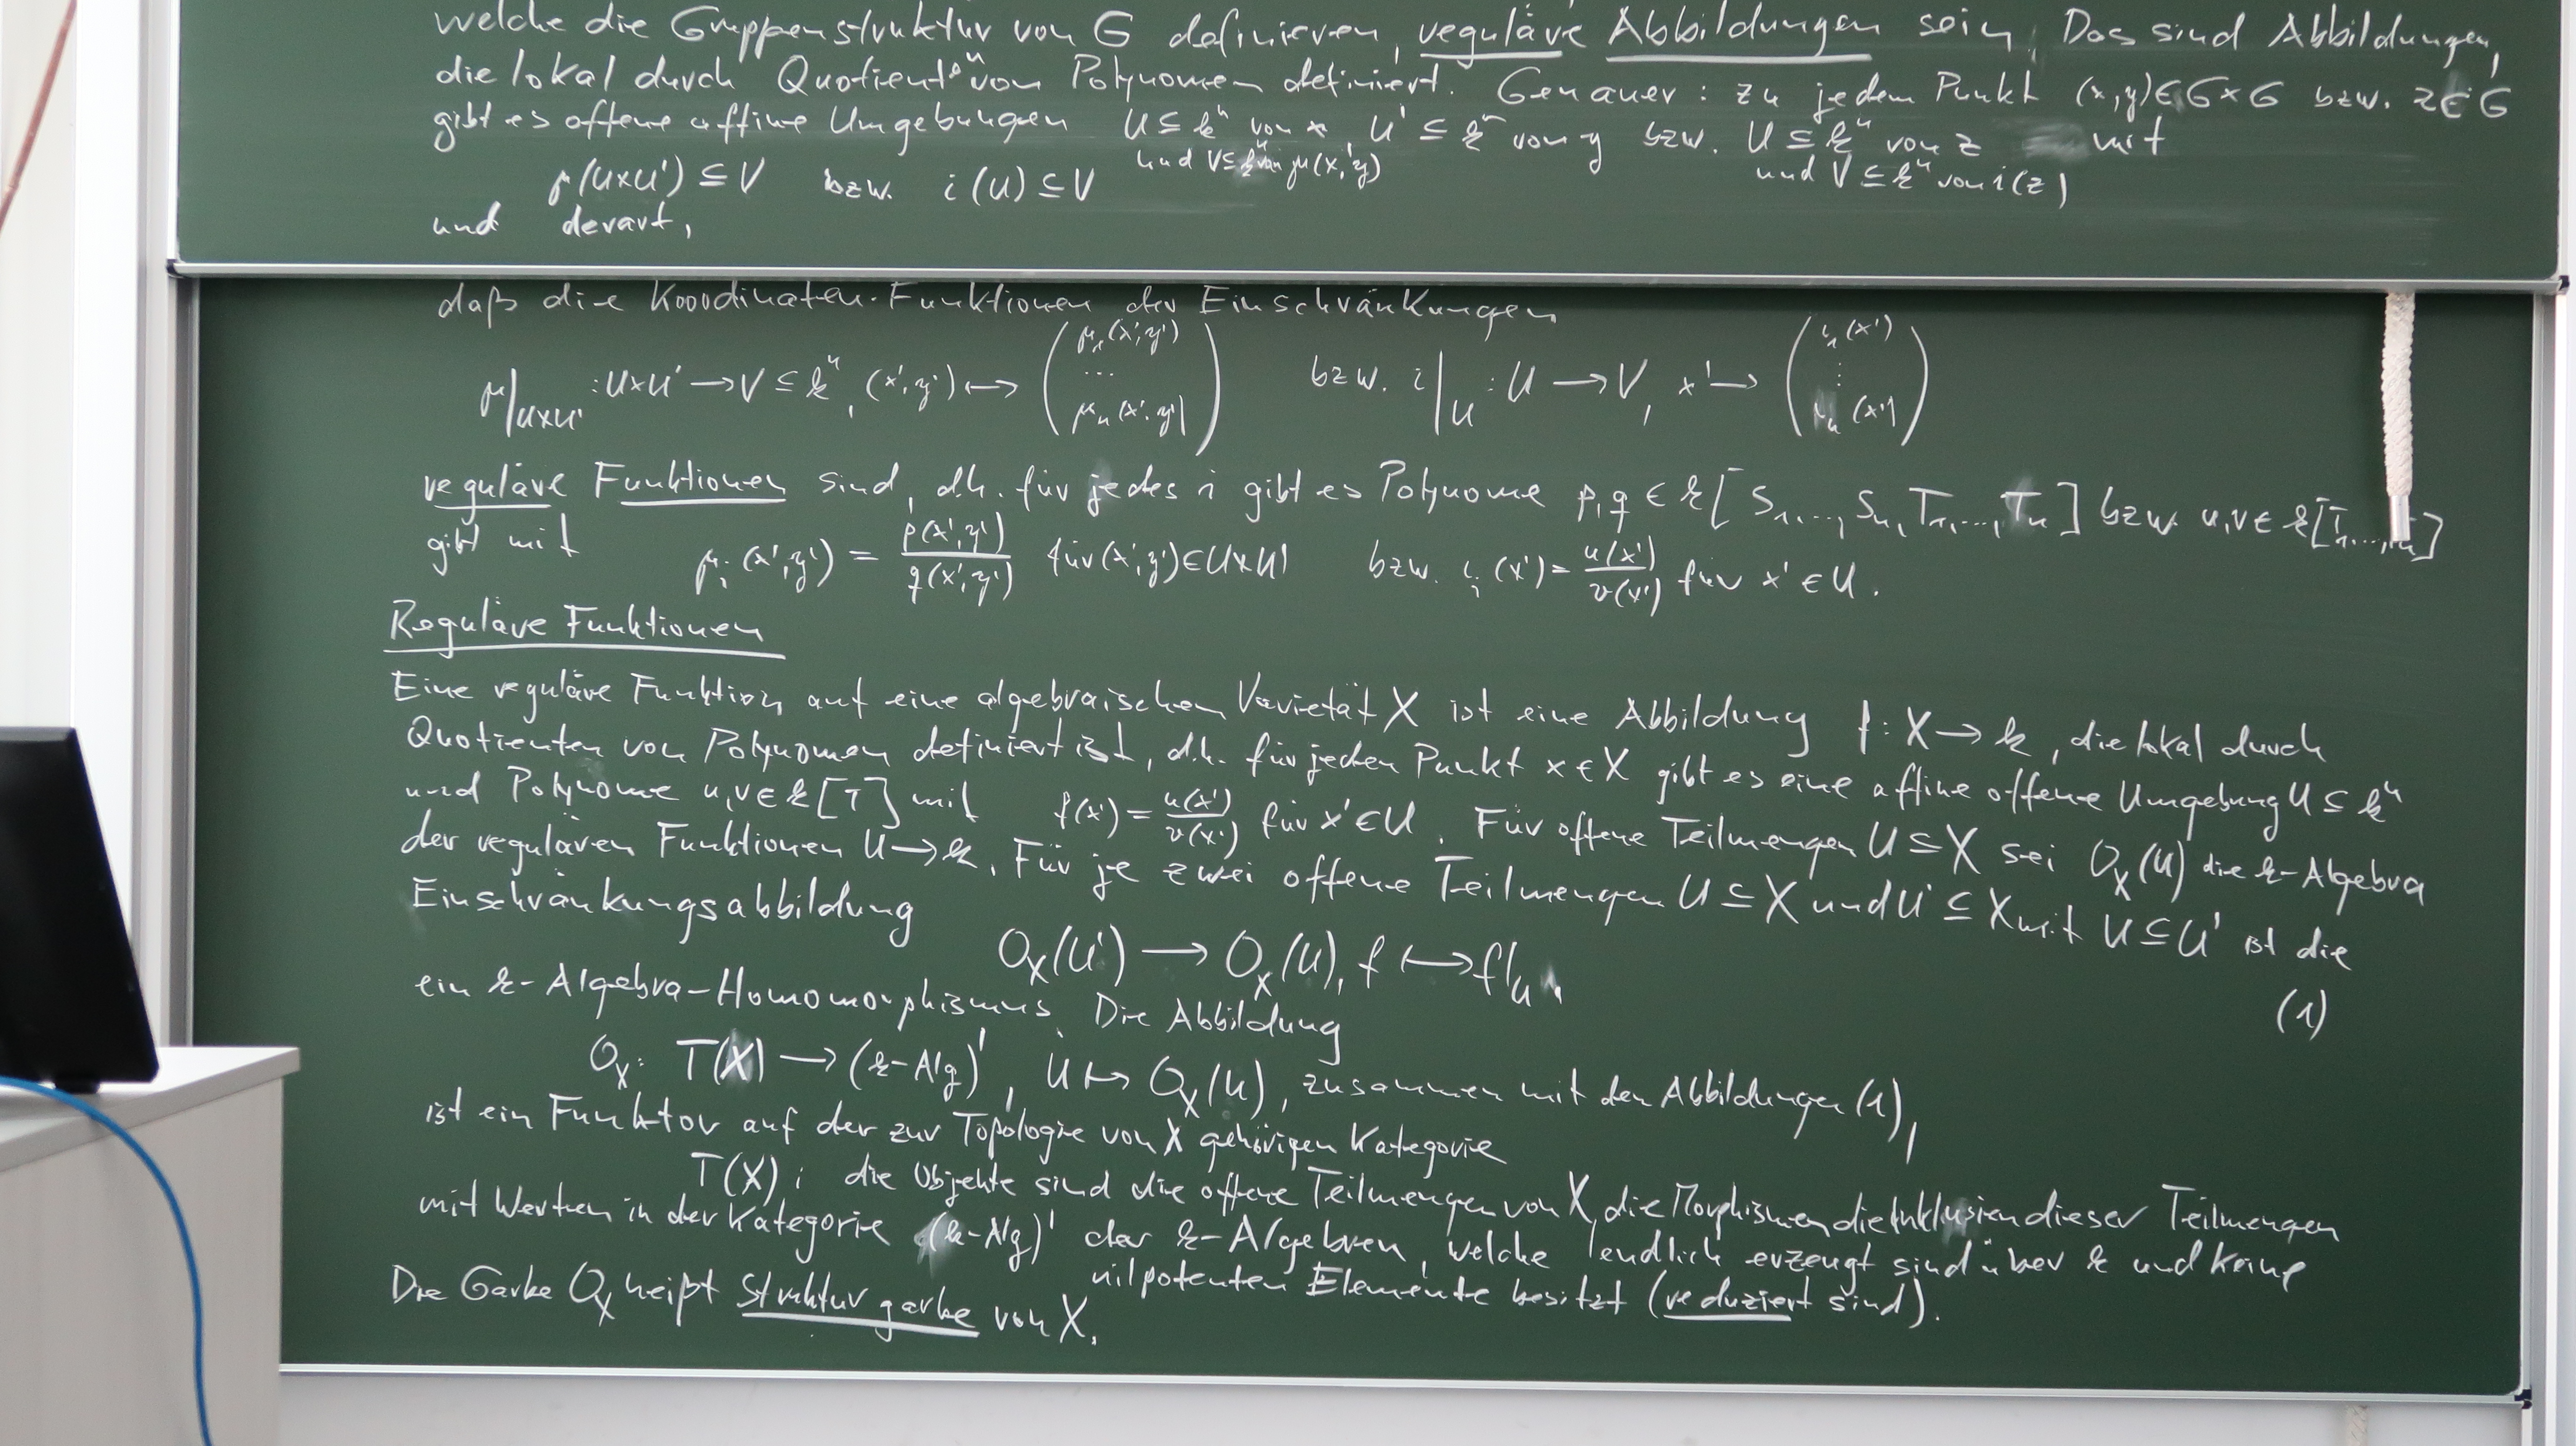 welche die Gruppenstruktur von G definieren, reguläre Abbildungen sein. Das sind Abbildungen,
die lokal durch Quotienten von Polynomen definiert. Genauer: zu jedem Punkt (x,y)∈G×G bzw. z∈G
gibt es offene affine Umgebungen U⊆k^n von x, U'⊆k^n von y bzw. U⊆k^n von z mit
und V⊆k^n von μ(x,y) und V⊆k^n von i(z)
μ(U×U')⊆V bzw. i(U)⊆V
und derart,
daß die Koordinaten-Funktionen der Einschränkungen
μ|_{U×U'} : U×U' → V⊆k^n, (x',y') ↦ (μ_1(x',y') ... μ_n(x',y')) bzw. i|_U : U → V, x' ↦ (ι_1(x') ⋮ ι_n(x'))
reguläre Funktionen sind, d.h. für jedes i gibt es Polynome p,q∈k[S_1,...,S_n,T_1,...,T_n] bzw. u,v∈k[T_1,...,T_n]
gibt mit μ_i(x',y') = p(x',y')/q(x',y') für (x',y')∈U×U' bzw. ι_i(x') = u(x')/v(x') für x'∈U.
Reguläre Funktionen
Eine reguläre Funktion auf eine algebraischen Varietät X ist eine Abbildung f: X → k, die lokal durch
Quotienten von Polynomen definiert ist, d.h. für jeden Punkt x∈X gibt es eine affine offene Umgebung U⊆k^n
und Polynome u,v∈k[T] mit f(x') = u(x')/v(x') für x'∈U. Für offene Teilmengen U⊆X sei O_X(U) die k-Algebra
der regulären Funktionen U→k. Für je zwei offene Teilmengen U⊆X und U'⊆X mit U⊆U' ist die
Einschränkungsabbildung
O_X(U') → O_X(U), f ↦ f|_U.
(1)
ein k-Algebra-Homomorphismus. Die Abbildung
O_X: T(X) → (k-Alg)', U ↦ O_X(U), zusammen mit den Abbildungen (1),
ist ein Funktor auf der zur Topologie von X gehörigen Kategorie
T(X): die Objekte sind die offene Teilmengen von X, die Morphismen die Inklusien dieser Teilmengen
mit Werten in der Kategorie (k-Alg)' der k-Algebren, welche endlich erzeugt sind über k und keine
nilpotenten Elemente besitzt (reduziert sind).
Die Garbe O_X heißt Strukturgarbe von X.